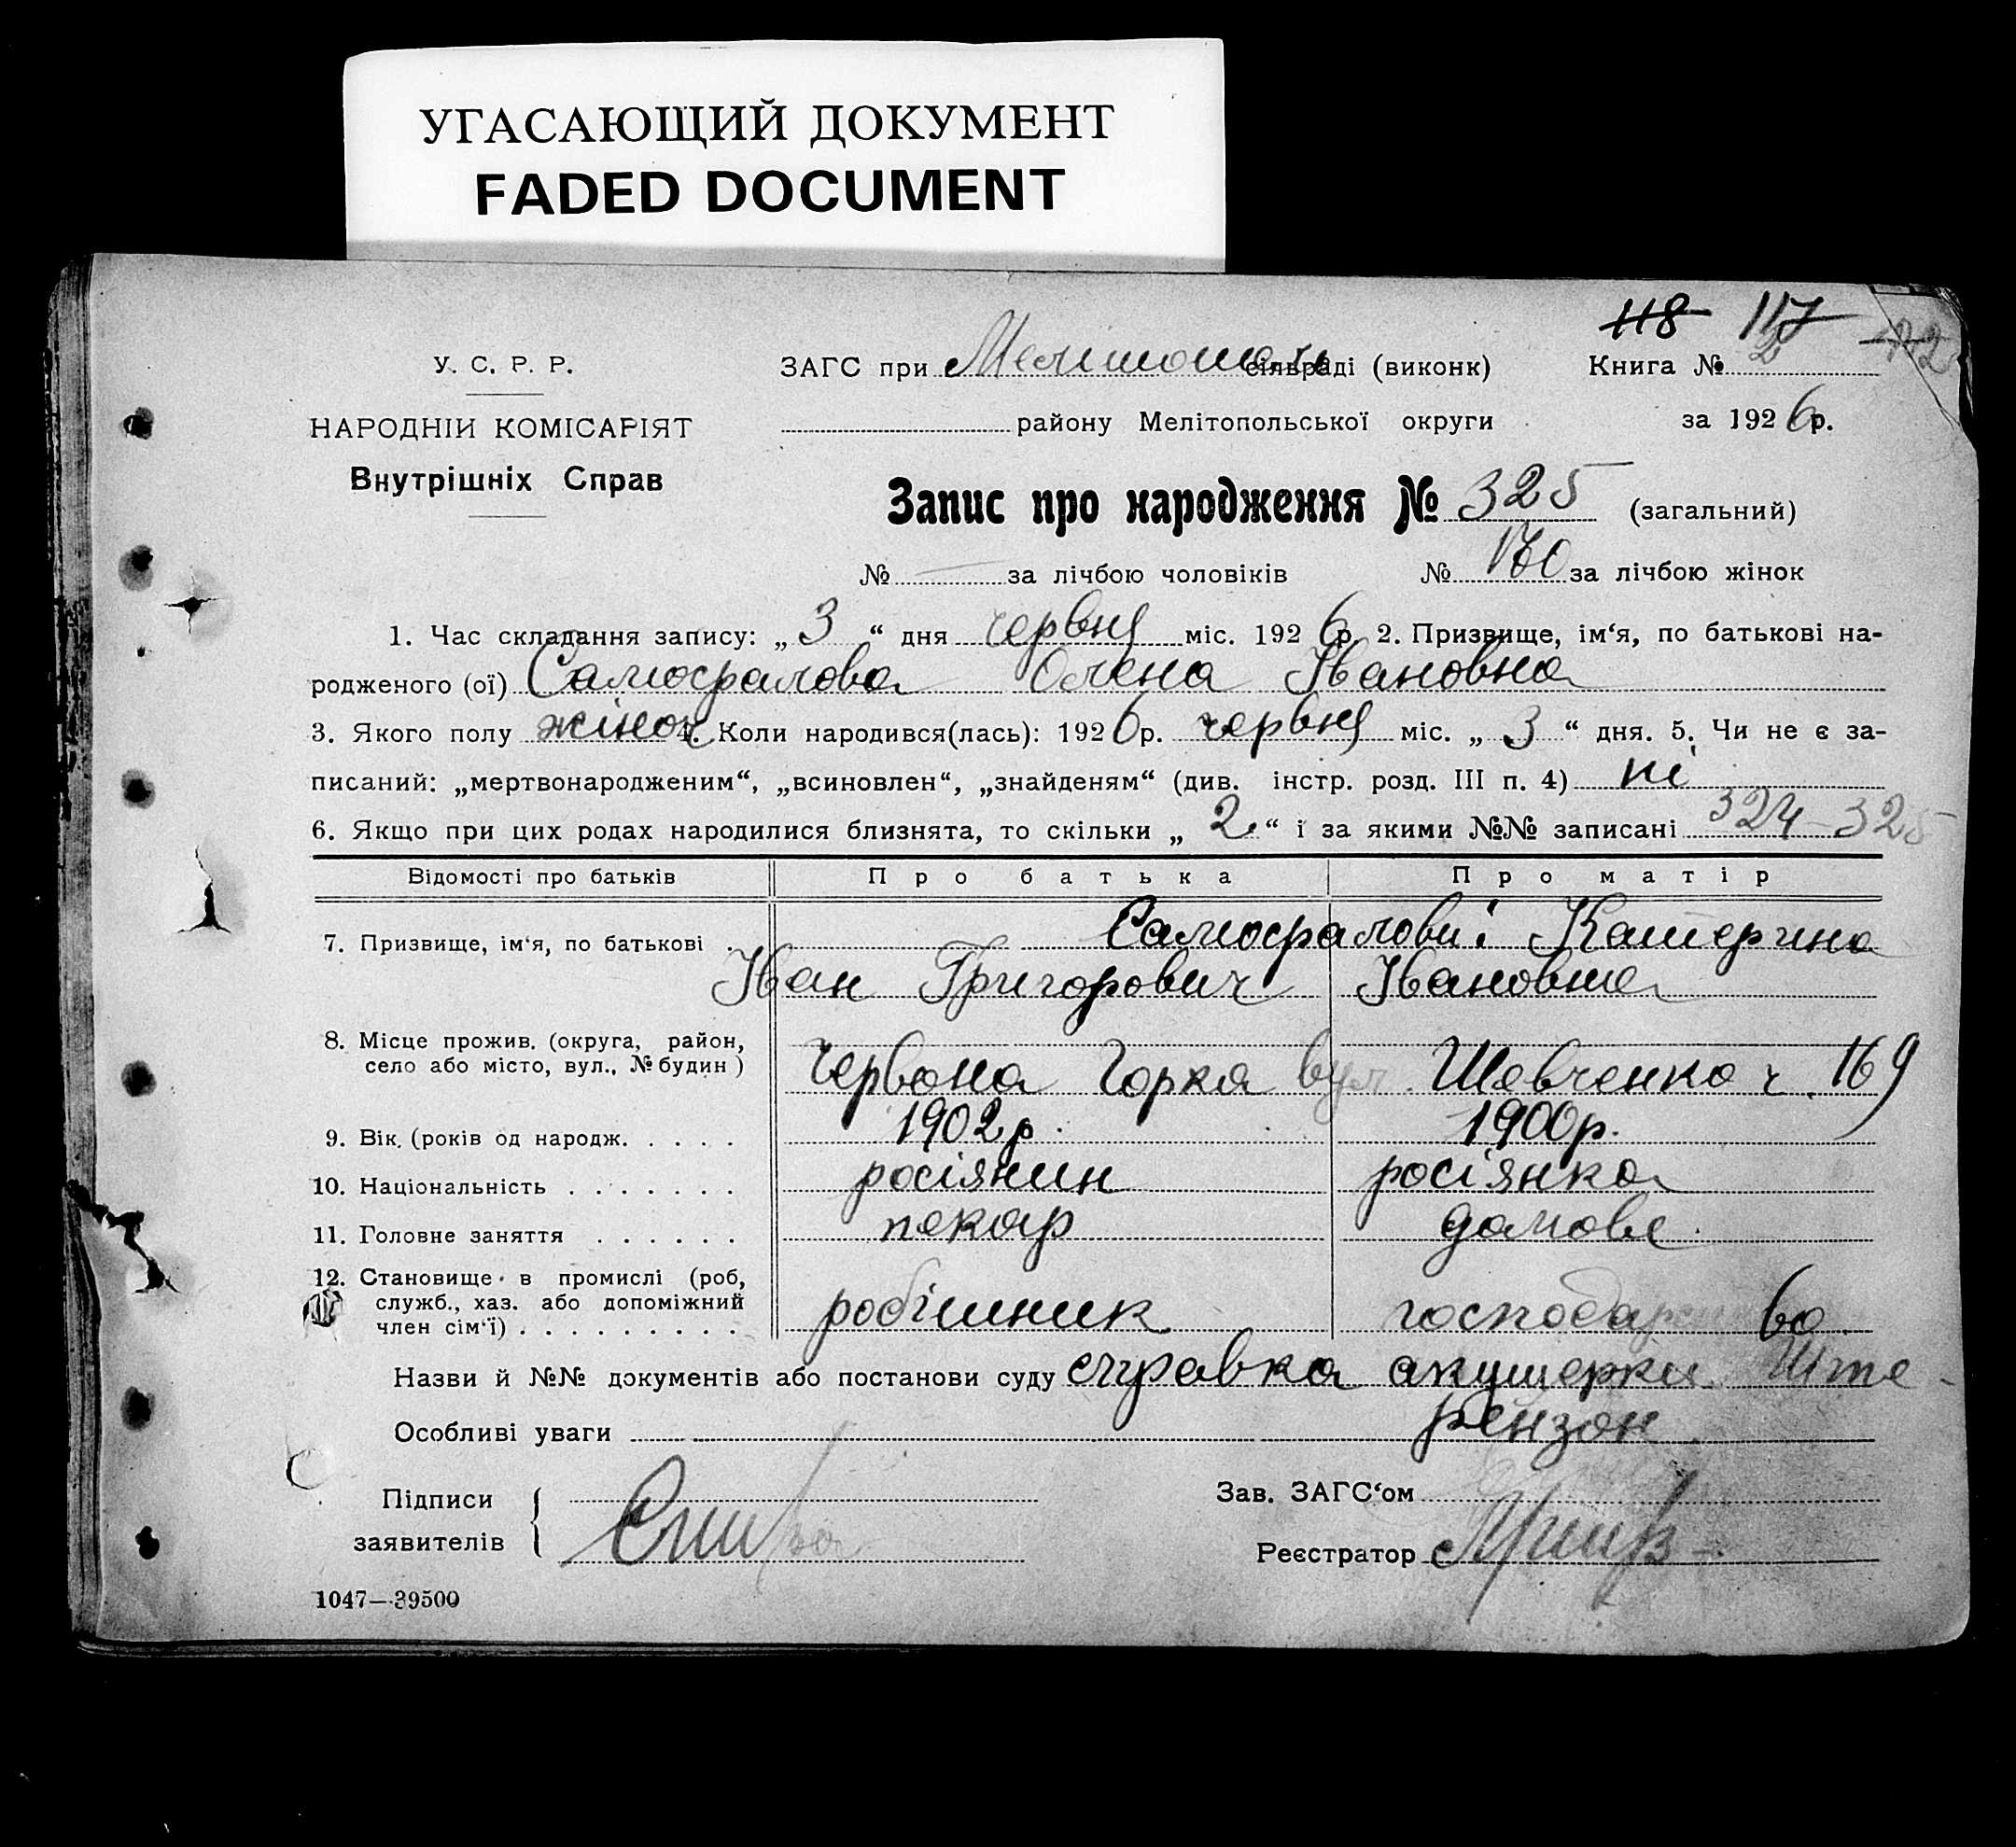 УГАСАЮЩИЙ ДОКУМЕНТ
FADED DOCUMENT
118 117
У. С. Р. Р. ЗАГС при Мелітополь сільраді (виконк) Книга № 2
НАРОДНІЙ КОМІСАРІЯТ району Мелітопольської округи за 1926 р.
Внутрішніх Справ
Запис про народження № 325 (загальний)
№ — за лічбою чоловіків № 170 за лічбою жінок
1. Час складання запису: „3“ дня червня міс. 1926 р. 2. Призвище, ім‘я, по батькові на-
родженого (ої) Самофалова Олена Івановна
3. Якого полу жіноч 4. Коли народився(лась): 1926 р. червня міс. „3“ дня. 5. Чи не є за-
писаний: „мертвонародженим“, „всиновлен“, „знайденям“ (див. інстр. розд. III п. 4) ні
6. Якщо при цих родах народилися близнята, то скільки „2“ і за якими №№ записані 324-325
Відомості про батьків Про батька Про матір
7. Призвище, ім‘я, по батькові . Самофалови: Катерина
Іван Григорович Івановна
8. Місце прожив. (округа, район,
село або місто, вул., № будин) Червона Горка вул. Шевченко ч. 169
9. Вік. (років од народж. . . . . 1902 р. 1900 р.
10. Національність . . . . . . . росіянин росіянка
11. Головне заняття . . . . . . пекар домове
12. Становище в промислі (роб,
служб., хаз. або допоміжний
член сім‘ї) . . . . . . . . . робітник господарство
Назви й №№ документів або постанови суду справка акушерки Ште-
Особливі уваги рензон
Підписи Зав. ЗАГС‘ом
заявителів Реєстратор
1047—39500